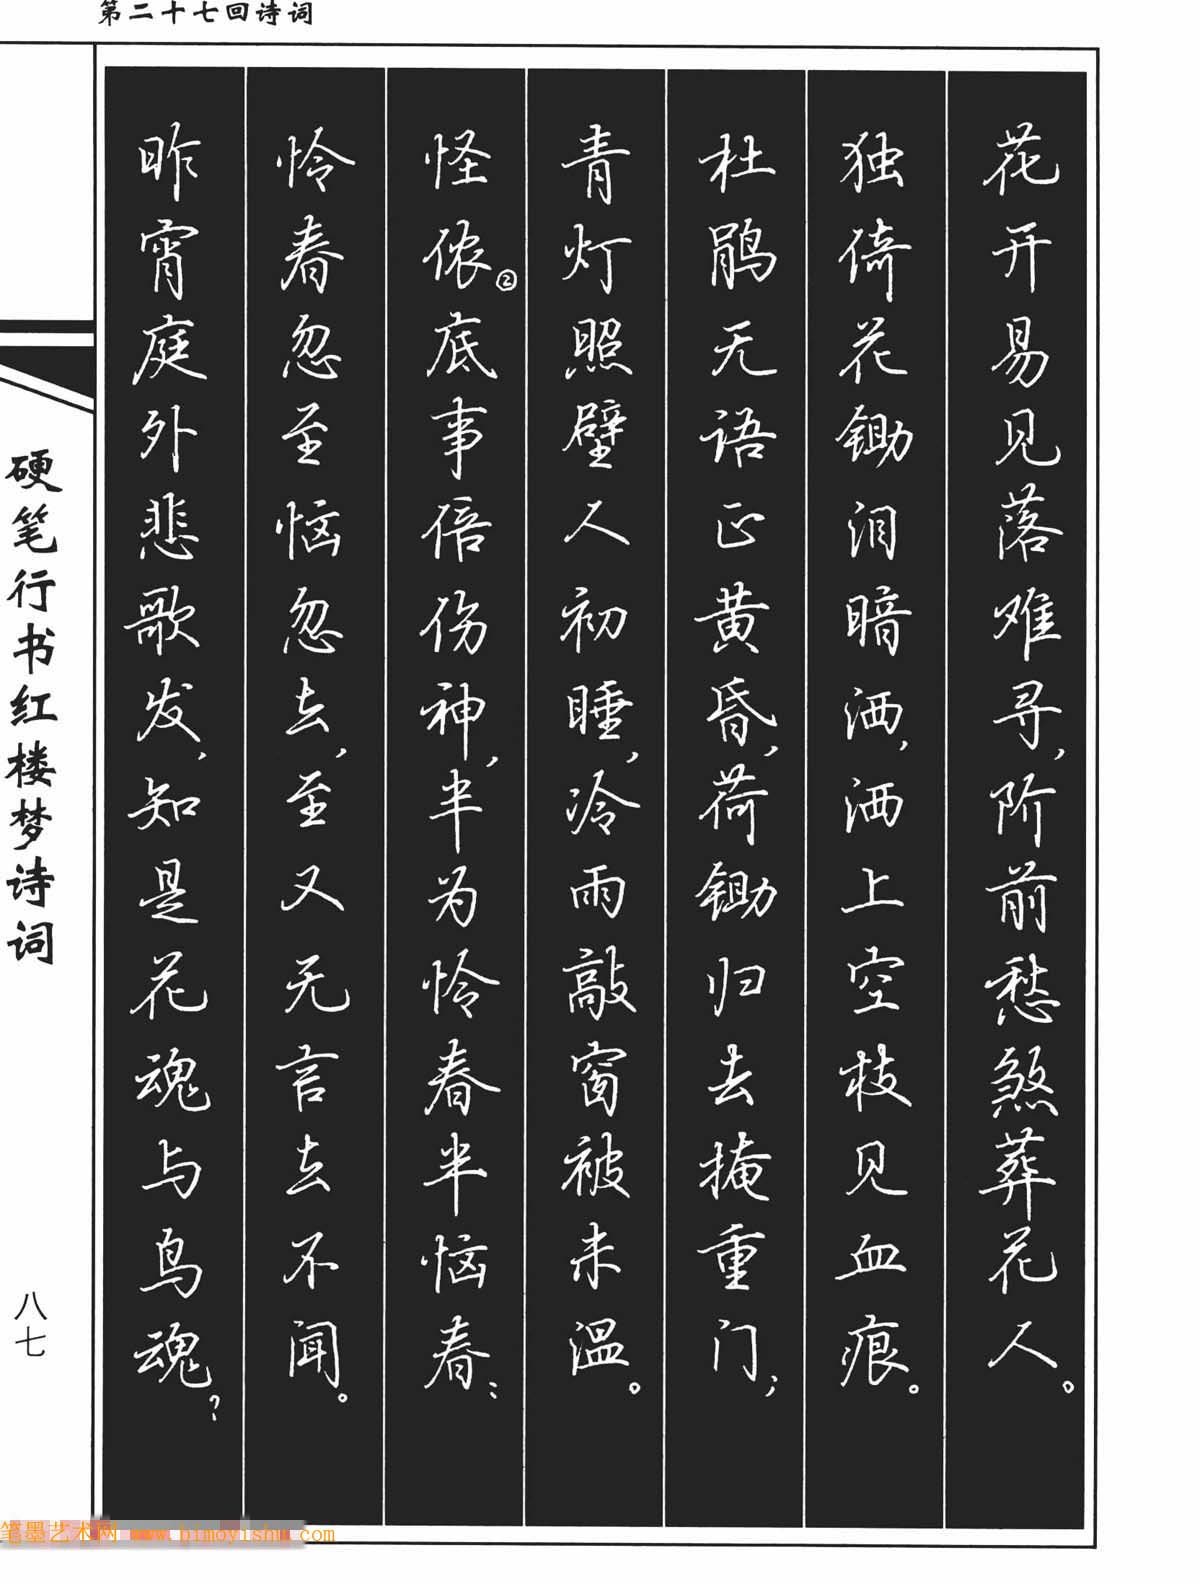 第二十七回诗词
花开易见落难寻，阶前愁煞葬花人。
独倚花锄泪暗洒，洒上空枝见血痕。
杜鹃无语正黄昏，荷锄归去掩重门；
青灯照壁人初睡，冷雨敲窗被未温。
怪侬②底事倍伤神，半为怜春半恼春：
怜春忽至恼忽去，至又无言去不闻。
昨宵庭外悲歌发，知是花魂与鸟魂？
硬笔行书红楼梦诗词
八七
笔墨艺术网 www.bimoyishu.com